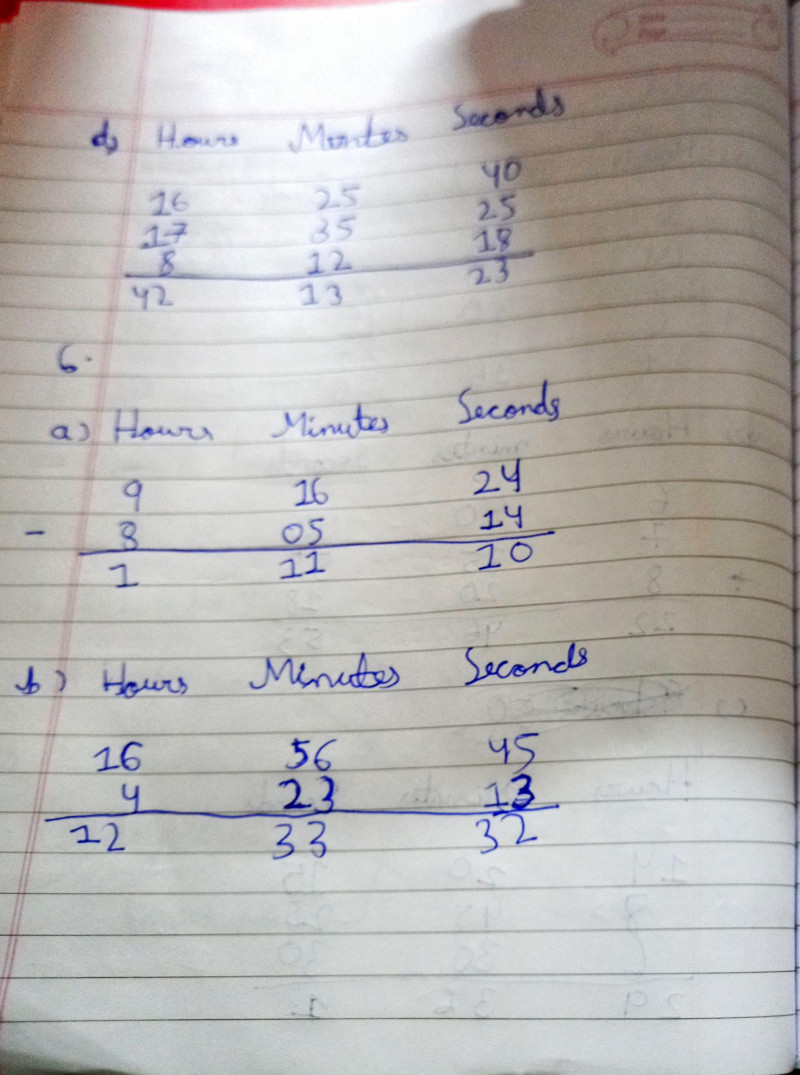 d) Hours Mintes Seconds
16 25 40
17 35 25
8 12 18
42 13 23
6.
a) Hours Minutes Seconds
9 16 24
- 8 05 14
1 11 10
b) Hours Minutes Seconds
16 56 45
4 23 13
12 33 32